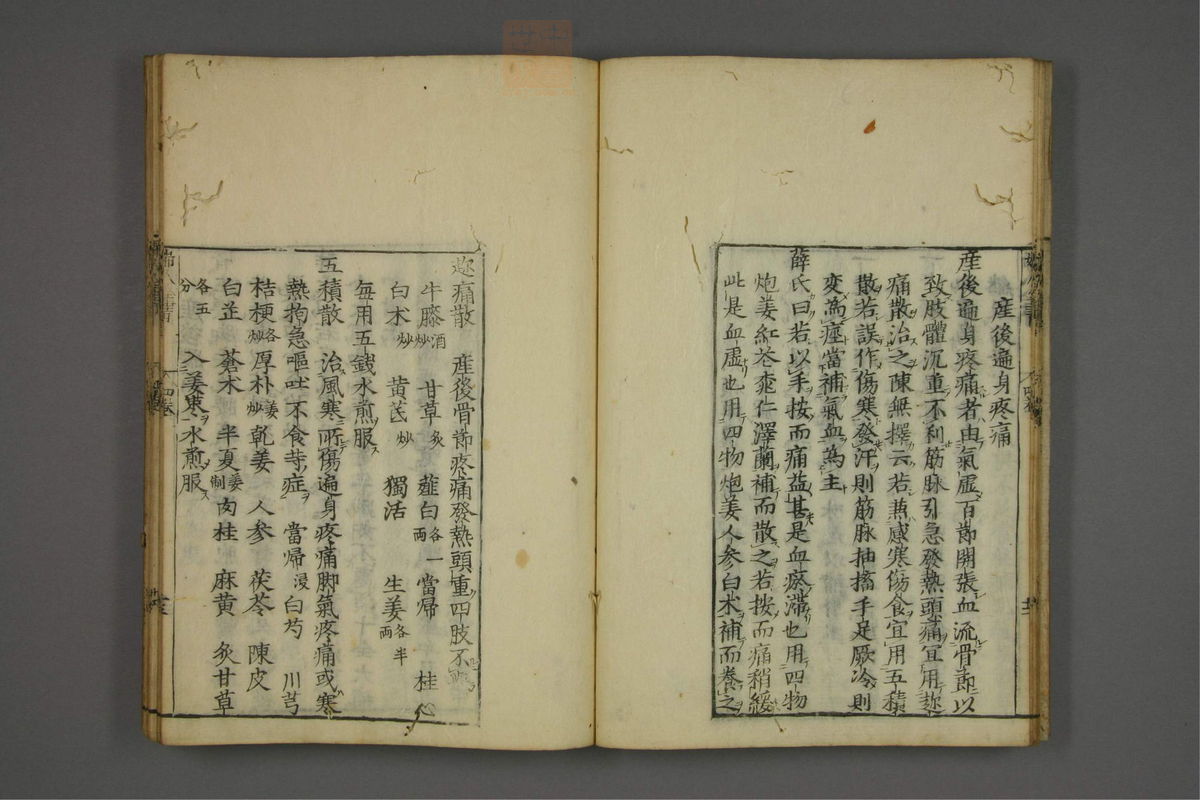 産後遍身疼痛
産後遍身疼痛者由氣虛百節開張血流骨節以
致肢體沉重不利筋脉引急發熱頭痛宜用趂
痛散治之陳無擇云若兼感寒傷食宜用五積
散若誤作傷寒發汗則筋脉抽搐手足厥冷則
変為痙當補氣血為主
薛氏曰若以手按而痛益甚是血瘀滯也用四物
炮姜紅花桃仁澤蘭補而散之若按而痛稍緩
此是血虛也用四物炮姜人参白术補而養之
趂痛散 産後骨節疼痛發熱頭重四肢不
牛膝酒炒 甘草炙 薤白各一兩 當帰 桂心
白术炒 黄芪炒 獨活 生姜各半兩
毎用五錢水煎服
五積散 治風寒所傷遍身疼痛脚氣疼痛或寒
熱拘急嘔吐不食等症 當帰 浸 白芍 川芎
桔梗各炒 厚朴姜炒 乾姜 人参 茯苓 陳皮
白芷 蒼术 半夏姜制 肉桂 麻黄 炙甘草
各五分 入姜棗水煎服